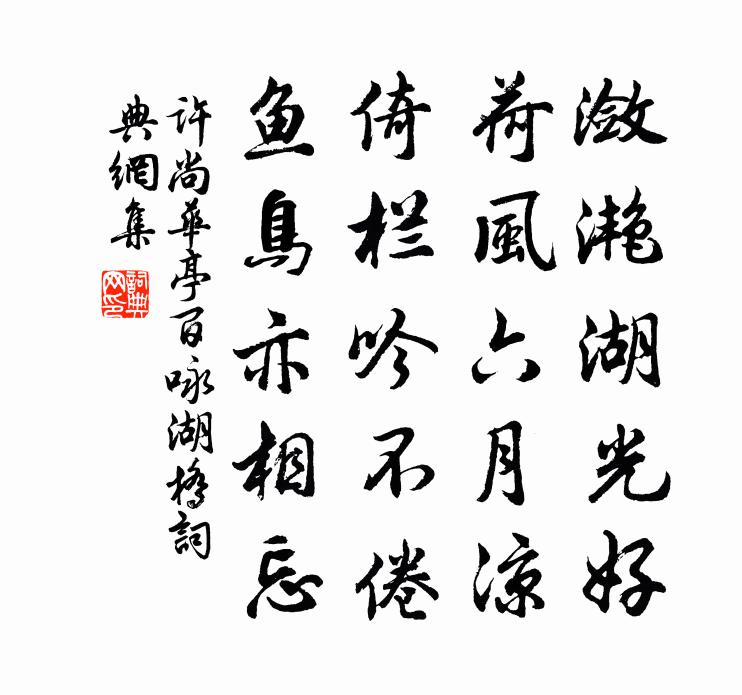 潋滟湖光好
荷風六月凉
倚栏吟不倦
鱼鳥亦相忘
许尚華亭百咏湖橋詞
典網集
詞典网印